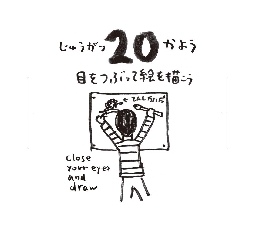 じゅうがつ 20 かよう
目をつぶって絵を描こう
close
your eyes
and
draw